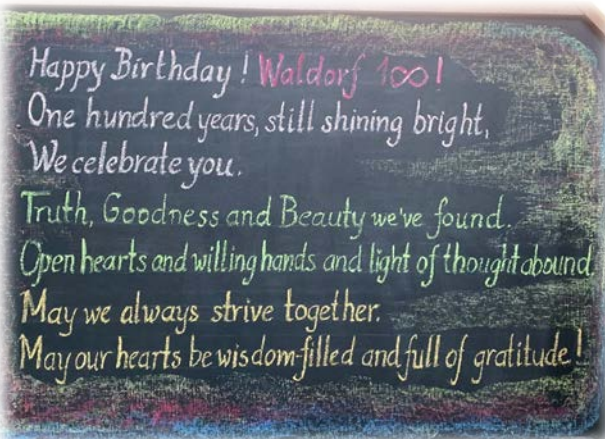 Happy Birthday! Waldorf 1∞!
One hundred years, still shining bright,
We celebrate you.
Truth, Goodness and Beauty we've found.
Open hearts and willing hands and light of thought abound.
May we always strive together.
May our hearts be wisdom-filled and full of gratitude!